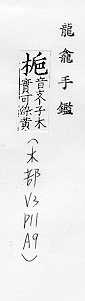 龍龕手鑑
音支子木
實可染黃
（木部V3
P11
A9）